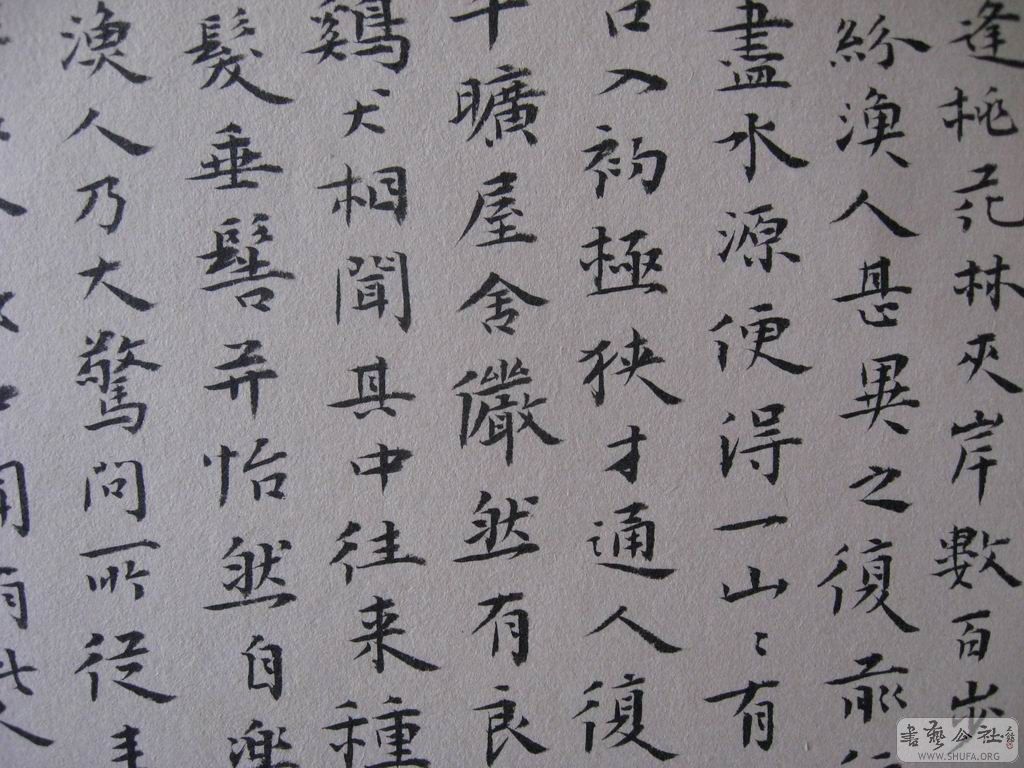 逢桃花林夾岸數百步
紛漁人甚異之復前行
盡水源便得一山〻有
口入初極狹才通人復
平曠屋舍儼然有良
鷄犬相聞其中往来種
髮垂髫并怡然自樂
漁人乃大驚問所従来
人
聞有此人
書藝公社
WWW.SHUFA.ORG